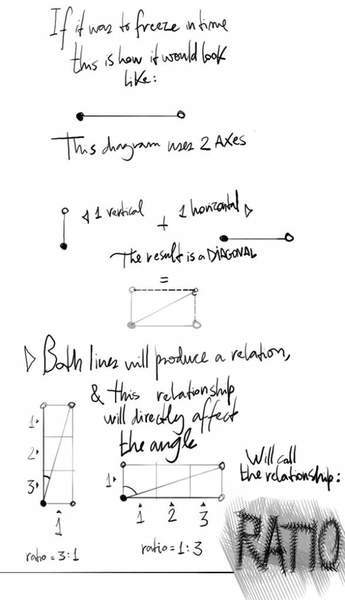 If it was to freeze in time
this is how it would look
like:
This diagram uses 2 AXES
◁ 1 vertical + 1 horizontal ▷
The result is a DIAGONAL
=
▷ Both lines will produce a relation,
& this relationship
will directly affect
the angle
1
2
3
1
ratio = 3:1
1
1 2 3
ratio = 1:3
Will call
the relationship:
RATIO